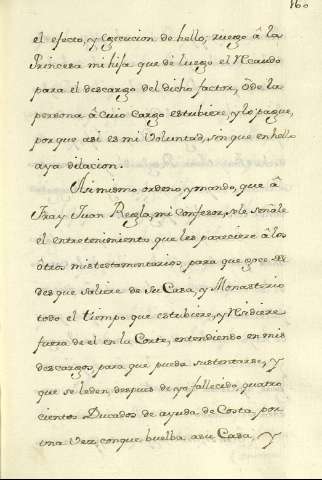 160
el efecto, y egecucion de hello; ruego â la
Princesa mi hija que dê luego el recaudo
para el descargo del dicho factor, ô de la
persona â cuio cargo estubiere, y lo pague,
porque asi es mi Voluntad, sin que en hello
aya dilacion.
Asimismo ordeno, y mando, que â
Fray Juan Regla, mi Confesor, se le señale
el entretenimiento que les pareciere â los
ôtros mis testamentarios, para que goce des
des que saliere de su Casa, y Monasterio
todo el tiempo que estubiere, y residiere
fuera de el en la Corte, entendiendo en mis
descargos, para que pueda sustentarse, y
que se le den, despues de yo fallecido, quatro
cientos Ducados de ayuda de Costa, por
una vez, conque buelba a su Casa, y